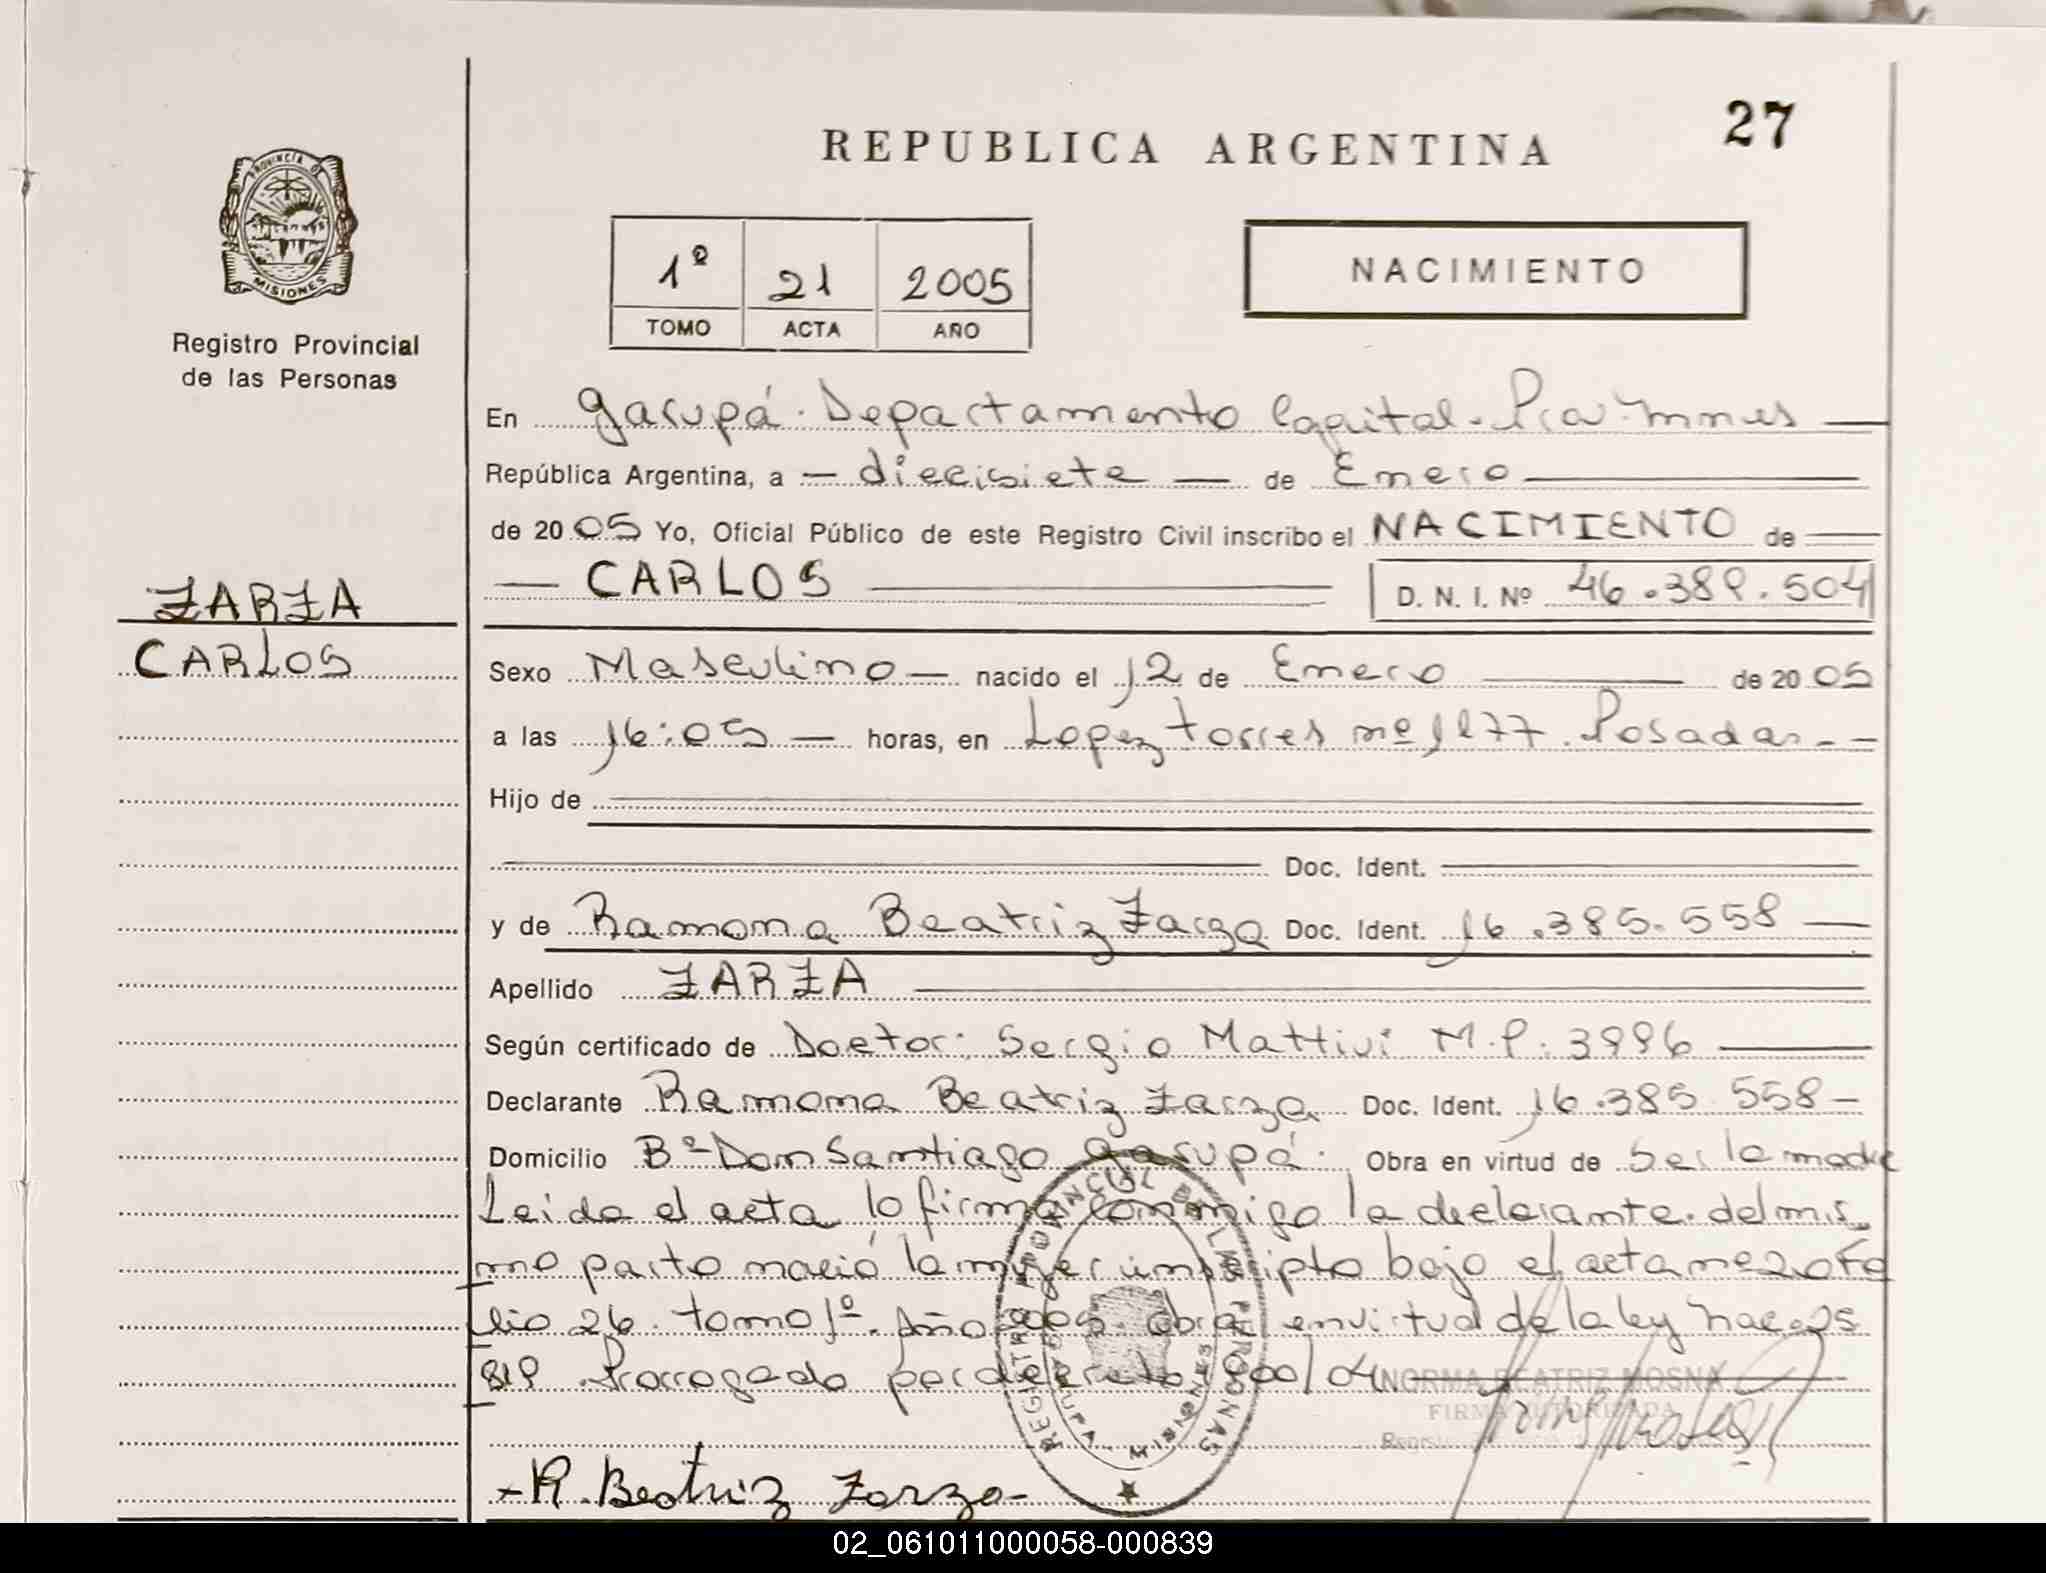 27
REPUBLICA ARGENTINA
PROVINCIA DE
MISIONES
Registro Provincial
de las Personas
1º 21 2005
TOMO ACTA AÑO
NACIMIENTO
En Garupá. Departamento Capital. Pcia Mnes
República Argentina, a — diecisiete — de Enero
de 2005 Yo, Oficial Público de este Registro Civil inscribo el NACIMIENTO de
— CARLOS — D. N. I. Nº 46.389.504
ZARZA
CARLOS
Sexo Masculino — nacido el 12 de Enero de 2005
a las 16:05 — horas, en Lopez torres nº 1177. Posadas - -
Hijo de
Doc. Ident.
y de Ramona Beatriz Zarza Doc. Ident. 16.385.558 —
Apellido ZARZA
Según certificado de Doctor: Sergio Mattivi M.P. 3996
Declarante Ramona Beatriz Zarza Doc. Ident. 16.385.558 –
Domicilio Bº Don Santiago Garupá. Obra en virtud de Ser la madre
Leida el acta lo firma conmigo la declarante. del mis
mo parto nació la mujer inscripto bajo el acta nº 20 fo
lio 26. tomo 1º. Año 2005. obra en virtud de la ley
819 Prorrogado por decreto 900/04
NORMA BEATRIZ MOSNA
FIRMA AUTORIZADA
REGISTRO PROVINCIAL DE LAS PERSONAS
GARUPA - MISIONES
- R. Beatriz Zarza -
02_061011000058-000839